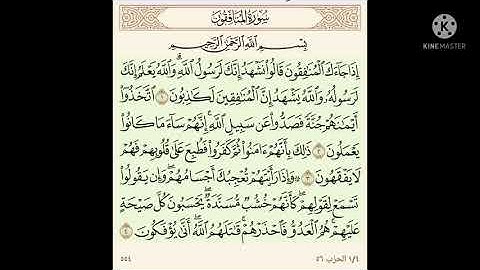 سُورَةُ المُنَافِقُونَ
بِسْمِ اللَّهِ الرَّحْمَٰنِ الرَّحِيمِ
إِذَا جَآءَكَ ٱلْمُنَٰفِقُونَ قَالُوا۟ نَشْهَدُ إِنَّكَ لَرَسُولُ ٱللَّهِۗ وَٱللَّهُ يَعْلَمُ إِنَّكَ
لَرَسُولُهُۥ وَٱللَّهُ يَشْهَدُ إِنَّ ٱلْمُنَٰفِقِينَ لَكَٰذِبُونَ ١ ٱتَّخَذُوٓا۟
أَيْمَٰنَهُمْ جُنَّةً فَصَدُّوا۟ عَن سَبِيلِ ٱللَّهِۚ إِنَّهُمْ سَآءَ مَا كَانُوا۟
يَعْمَلُونَ ٢ ذَٰلِكَ بِأَنَّهُمْ ءَامَنُوا۟ ثُمَّ كَفَرُوا۟ فَطُبِعَ عَلَىٰ قُلُوبِهِمْ فَهُمْ
لَا يَفْقَهُونَ ٣ ۞ وَإِذَا رَأَيْتَهُمْ تُعْجِبُكَ أَجْسَامُهُمْۖ وَإِن يَقُولُوا۟
تَسْمَعْ لِقَوْلِهِمْۖ كَأَنَّهُمْ خُشُبٌ مُّسَنَّدَةٌۖ يَحْسَبُونَ كُلَّ صَيْحَةٍ
عَلَيْهِمْۚ هُمُ ٱلْعَدُوُّ فَٱحْذَرْهُمْۚ قَٰتَلَهُمُ ٱللَّهُۖ أَنَّىٰ يُؤْفَكُونَ ٤
١/٤ الحزب ٥٦
٥٥٤
KINEMASTER